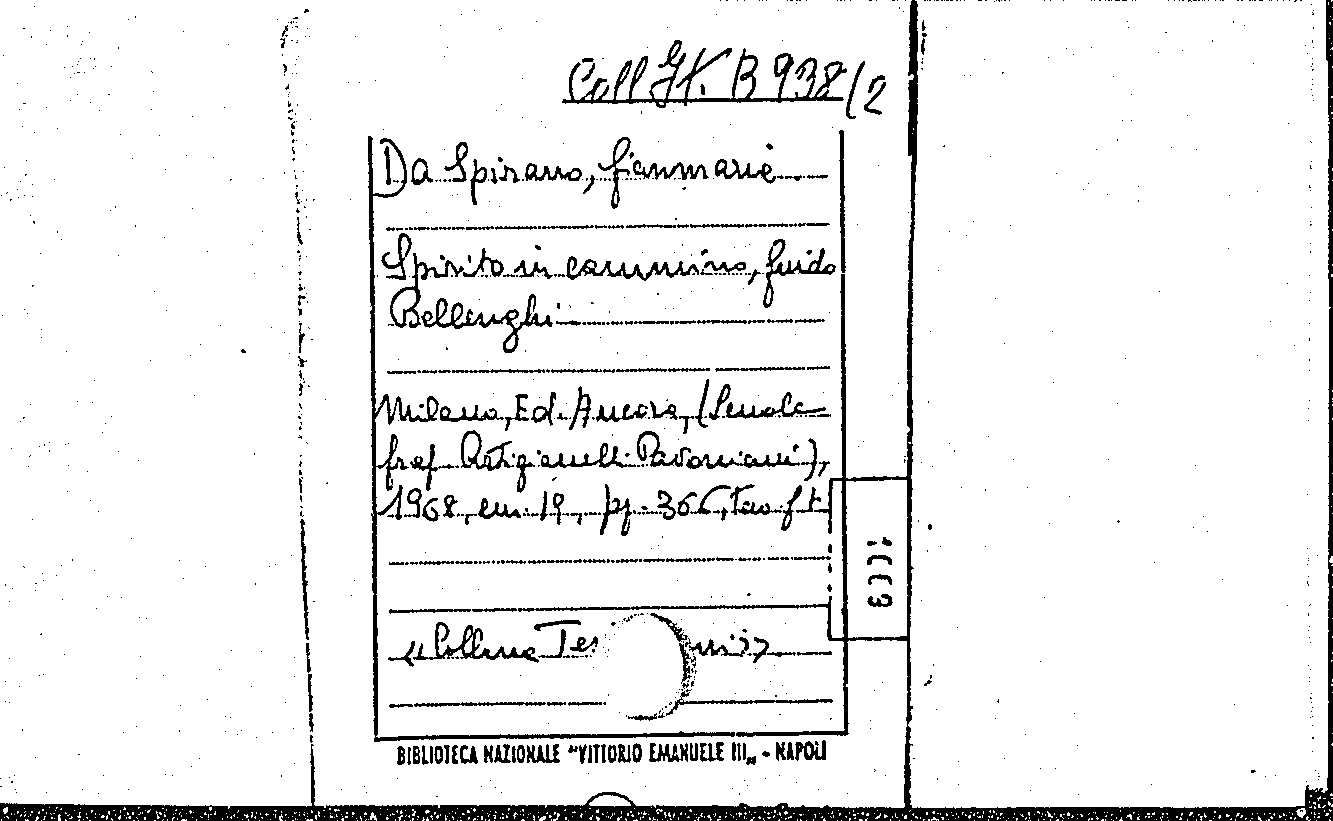 Coll. It. B 938/2
Da Spirano, Gianmaria
Spirito in cammino, Guido
Bellenghi
Milano, Ed. Ancora, (Scuola
graf. Artigianelli Pavoniani),
1968, cm. 19, pp. 366, tav. f. t.
1009
«Collana Tes
BIBLIOTECA NAZIONALE "VITTORIO EMANUELE III„ - NAPOLI